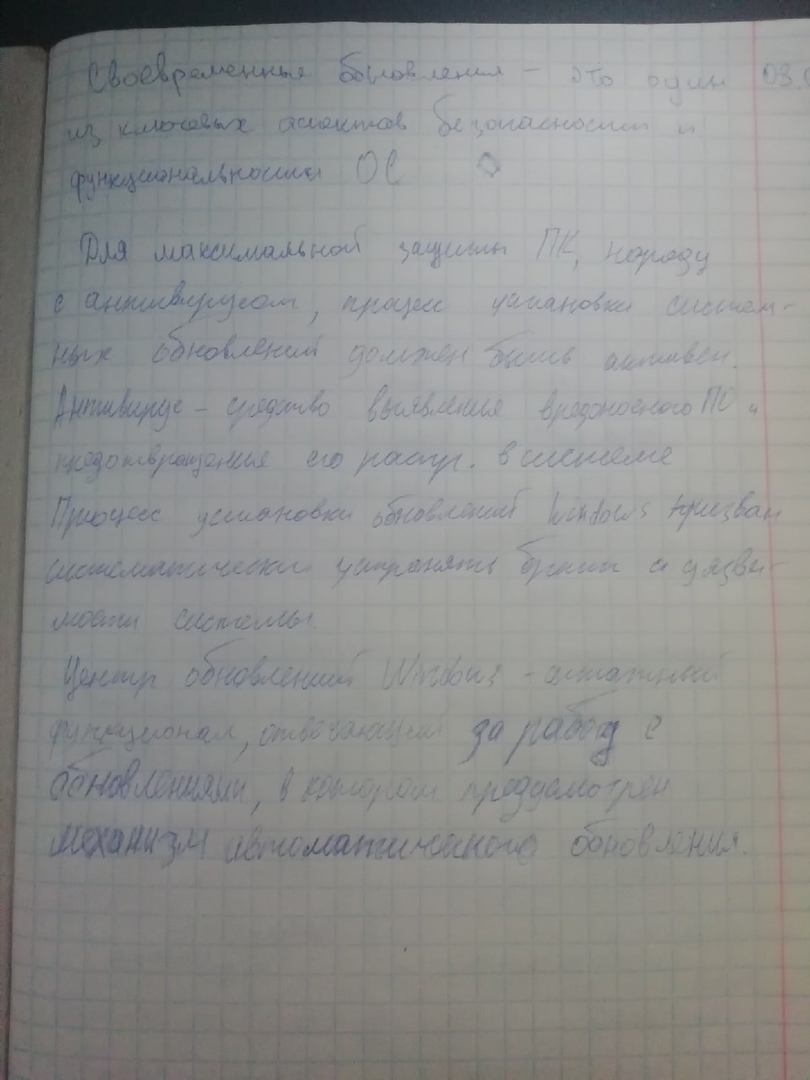 Своевременные бновления - это один 03.
из ключевых аспектов безопасности и
функциональности ОС
Для максимальной защиты ПК, наряду
с антивирусом, процесс установки систем-
ных обновлений должен быть активен.
Антивирус - средство выявления вредоносного ПО и
предотвращения его распр. в системе
Процесс установки обновлений Windows призван
систематически устранять баги и уязви-
мости системы.
Центр обновлений Windows - штатный
функционал, отвечающий за работу с
обновлениями, в котором предусмотрен
механизм автоматического обновления.